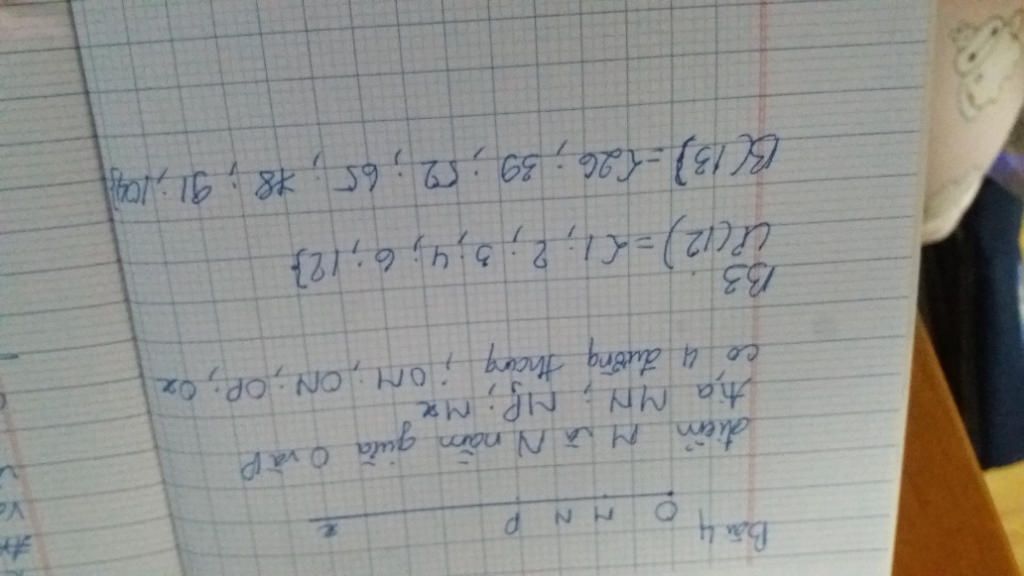 Bài 4
O M N P x
điểm M và N nằm giữa O và P
t,a MN ; MP ; Mx
có 4 đường thẳng ; OM ; ON ; OP ; Ox
B3
Ư(12) = {1 ; 2 ; 3 ; 4 ; 6 ; 12}
B(13) = {26 ; 39 ; 52 ; 65 ; 78 ; 91 ; 104}